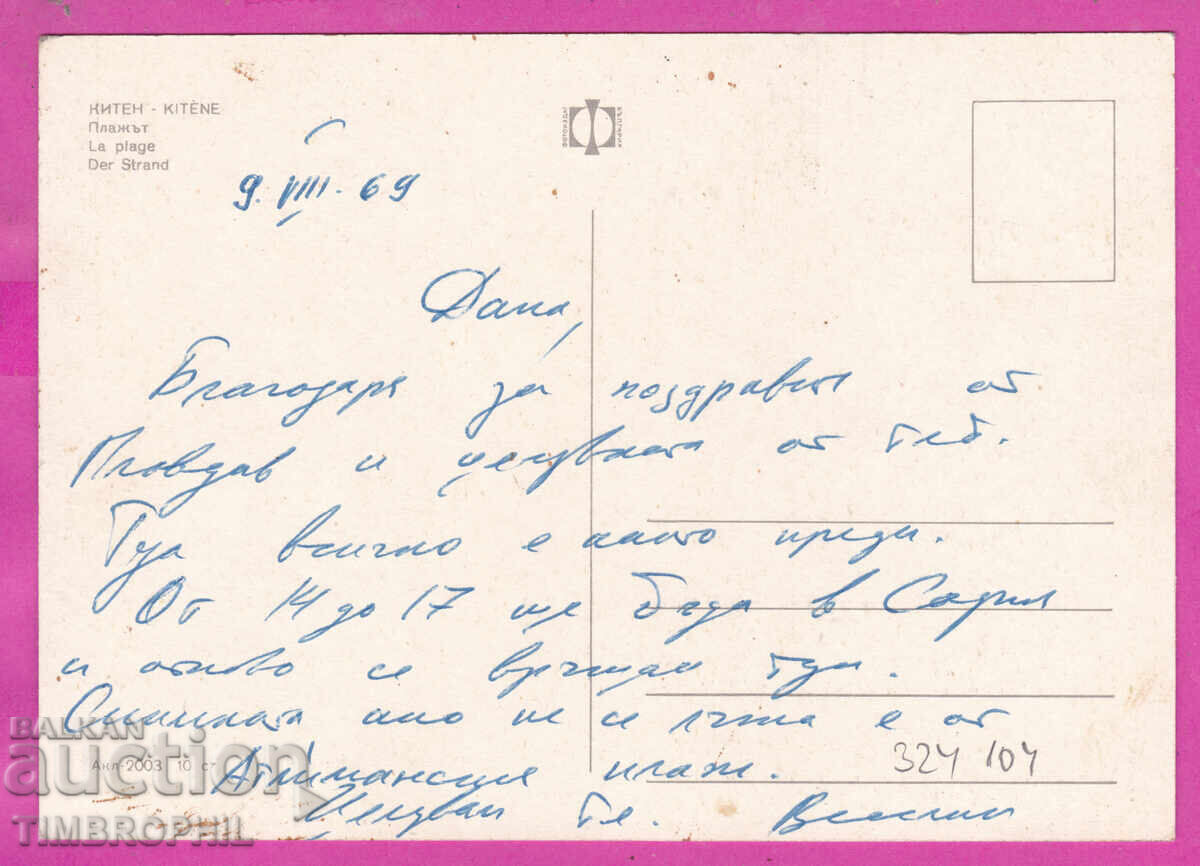 КИТЕН - KITÈNE
Плажът
La plage
Der Strand
ФОТОИЗДАТ
БЪЛГАРИЯ
9.VIII.69
Дана,
Благодаря за поздравите от
Пловдив и целувката от теб.
Тук всичко е както преди.
От 14 до 17 ще бъда в София
и отново се връщам тук.
Снимката ако не се лъжа е от
Атлиманския плаж.
Целувам те. Веселин
324 104
Акл-2003 10 ст
BALKAN
auction
TIMBROPHIL